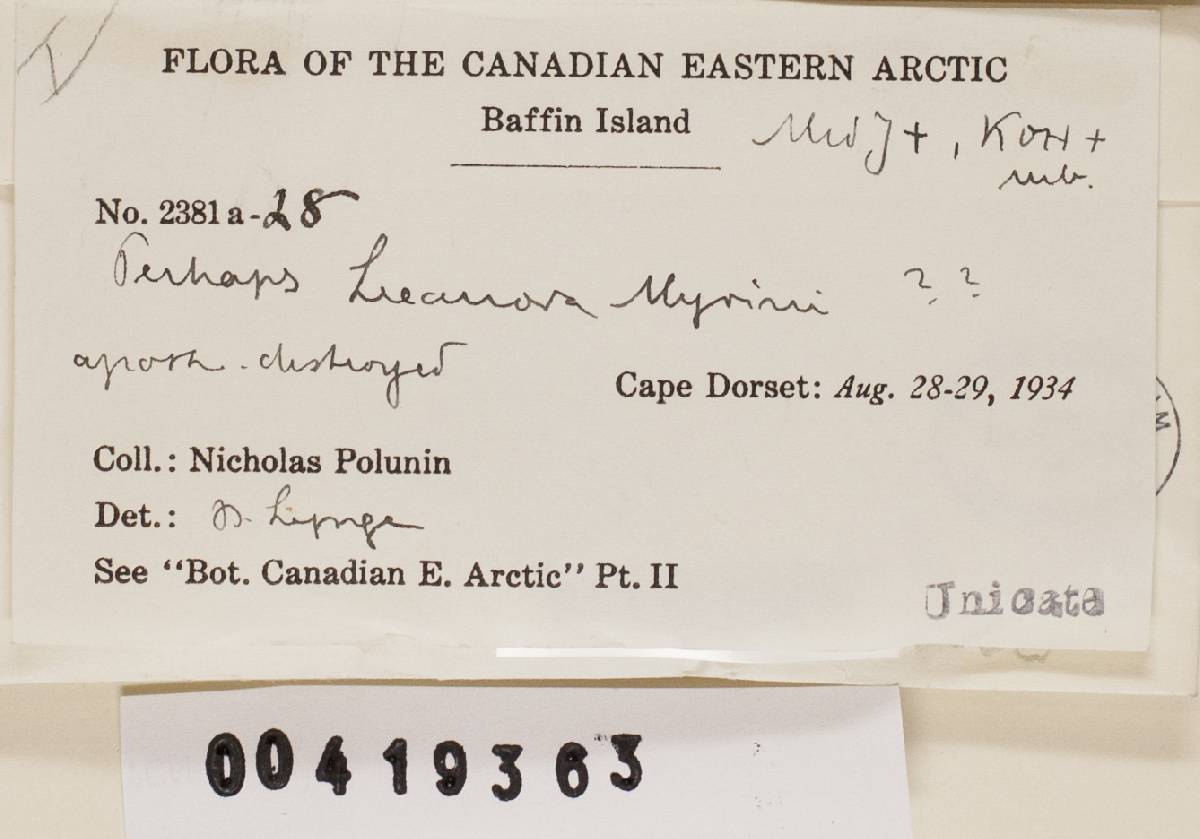 FLORA OF THE CANADIAN EASTERN ARCTIC
Baffin Island
Med J+, KOH +
rub.
No. 2381 a-28
Perhaps Lecanora Myrini ? ?
apoth. destroyed
Cape Dorset: Aug. 28-29, 1934
Coll.: Nicholas Polunin
Det.: B. Lynge
See "Bot. Canadian E. Arctic" Pt. II
Unicate
00419363